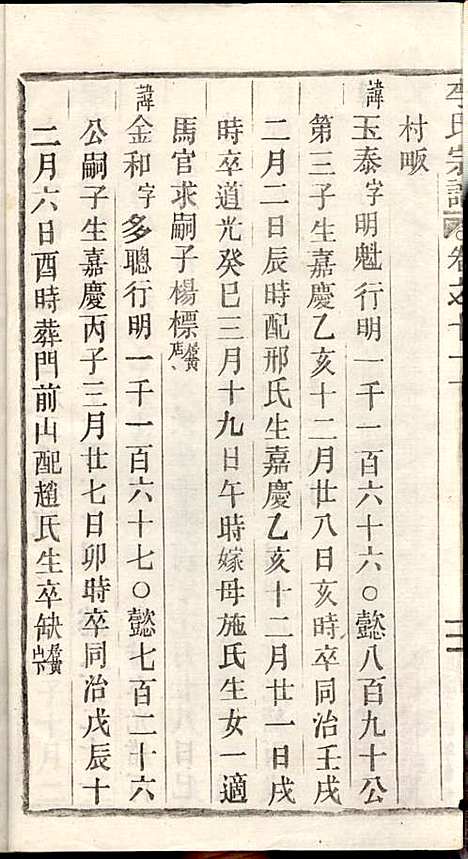 李氏宗譜 卷之十一
村畈
諱玉泰字明魁行明一千一百六十六○懿八百九十公
第三子生嘉慶乙亥十二月廿八日亥時卒同治壬戌
二月二日辰時配邢氏生嘉慶乙亥十二月廿一日戌
時卒道光癸巳三月十九日午時嫁母施氏生女一適
馬官求嗣子楊標
諱金和字多聰行明一千一百六十七○懿七百二十六
公嗣子生嘉慶丙子三月廿七日卯時卒同治戊辰十
二月六日酉時葬門前山配趙氏生卒缺